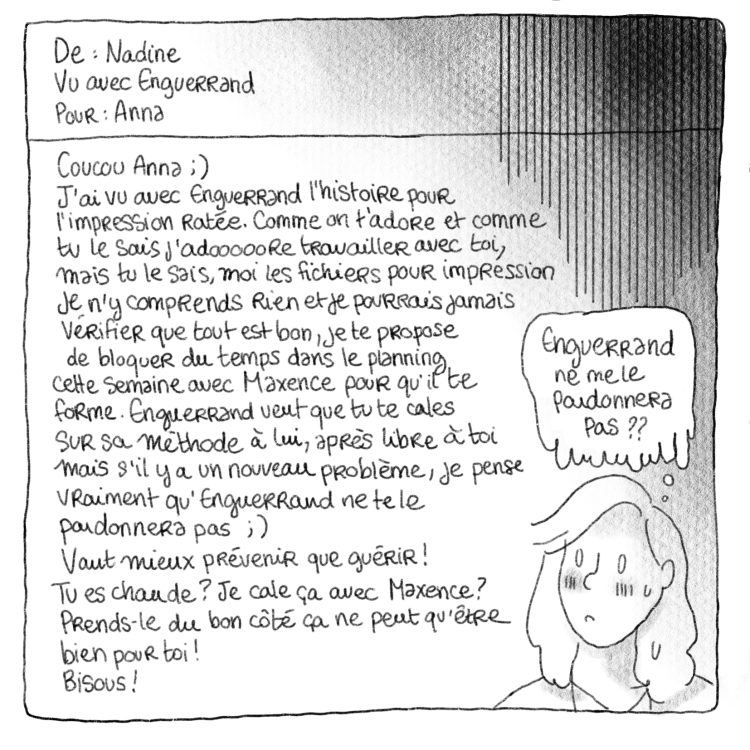 De : Nadine
Vu avec Enguerrand
Pour : Anna
Coucou Anna ;)
J'ai vu avec Enguerrand l'histoire pour
l'impression ratée. Comme on t'adore et comme
tu le sais j'adoooooRe travailler avec toi,
mais tu le sais, moi les fichiers pour impression
je n'y comprends rien et je pourrais jamais
vérifier que tout est bon, je te propose
de bloquer du temps dans le planning
cette semaine avec Maxence pour qu'il te
forme. Enguerrand veut que tu te cales
sur sa méthode à lui, après libre à toi
mais s'il y a un nouveau problème, je pense
vraiment qu'Enguerrand ne te le
pardonnera pas ;)
Vaut mieux prévenir que guérir !
Tu es chaude ? Je cale ça avec Maxence ?
Prends-le du bon côté ça ne peut qu'être
bien pour toi !
Bisous !
Enguerrand
ne me le
pardonnera
pas ??